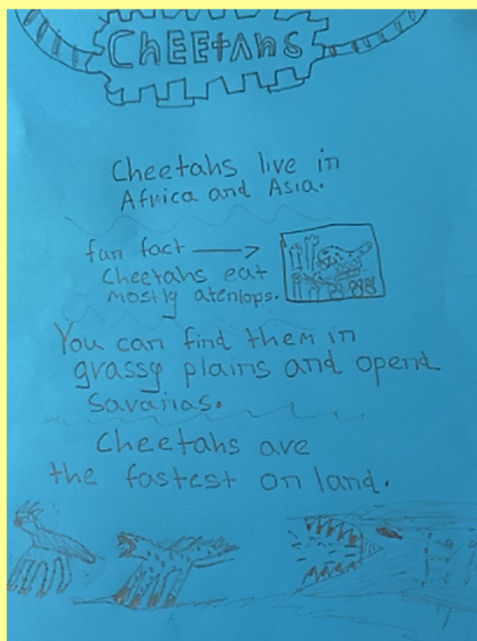 ChEEtAhS
Cheetahs live in
Africa and Asia.
fun fact
Cheetahs eat
mostly atenlops.
You can find them in
grassy plains and opend
Savanas.
Cheetahs are
the fastest on land.